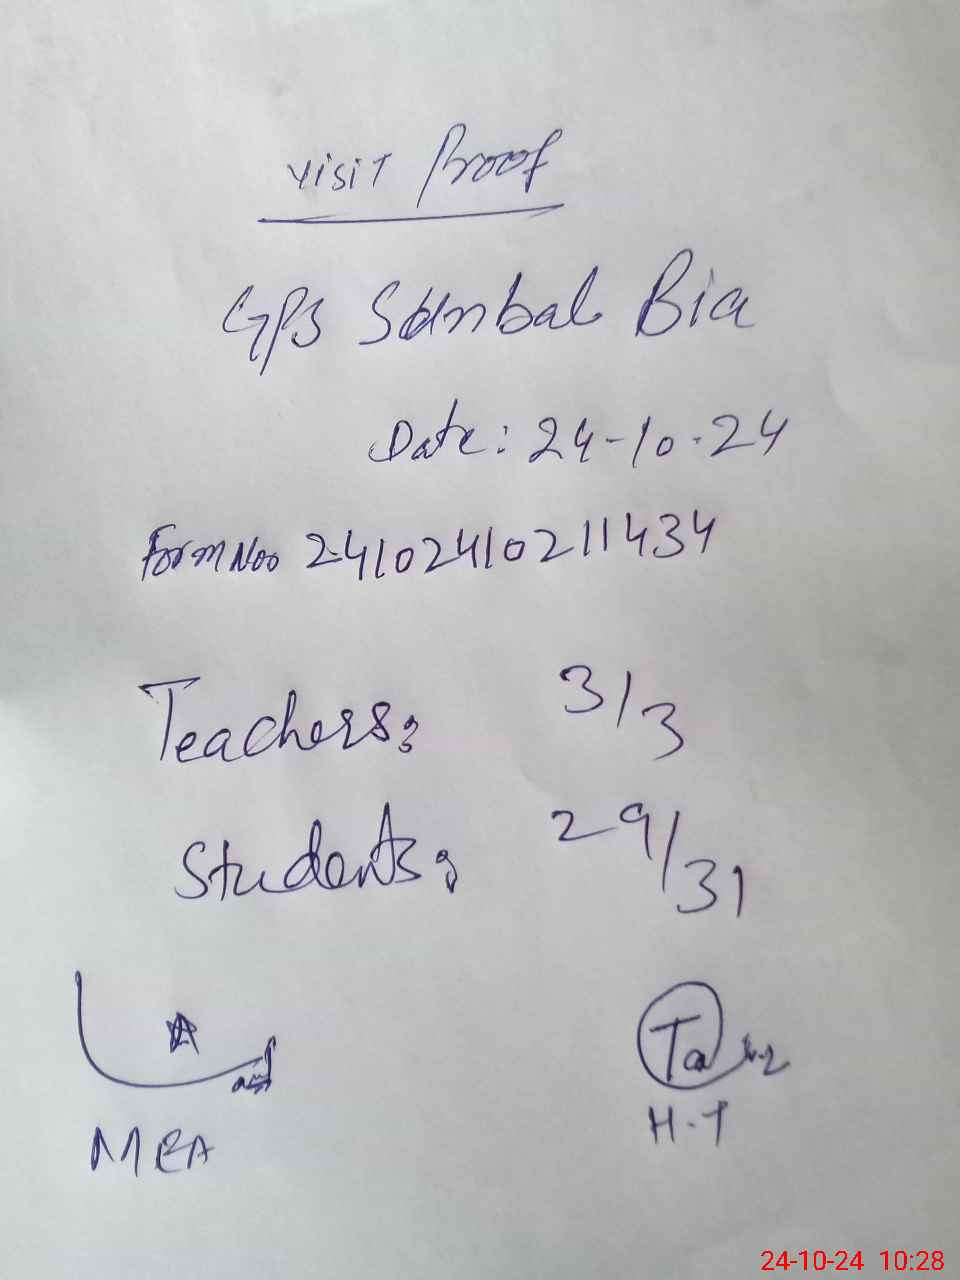 Visit Proof
GPS Sanbal Bia
Date: 24-10-24
Form No: 24102410211434
Teachers: 3/3
Students: 29/31
MEA
H.T
24-10-24 10:28